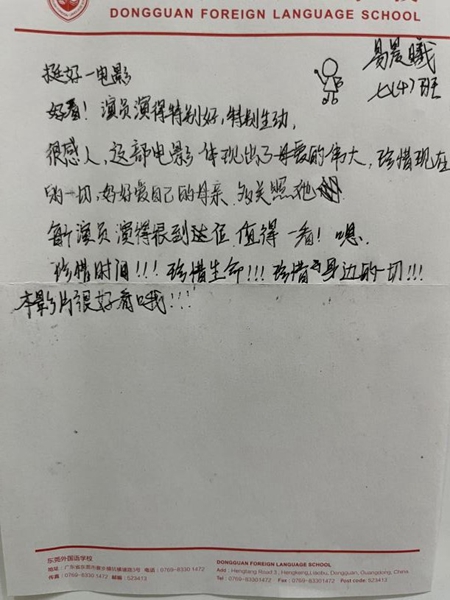 DONGGUAN FOREIGN LANGUAGE SCHOOL
易晨曦
七(4)班
挺好一电影
好看！演员演得特别好，特别生动，
很感人，这部电影体现出了母爱的伟大，珍惜现在
的一切，好好爱自己的母亲 多关照她
每个演员演得很到达位 值得一看！嗯.
珍惜时间!!! 珍惜生命!!! 珍惜身边的一切!!!
本影片很好看哦!!!
东莞外国语学校
地址：广东省东莞市寮步镇横塘路3号 电话：0769-8330 1472
传真：0769-8330 1472 邮编：523413
DONGGUAN FOREIGN LANGUAGE SCHOOL
Add : Hengtang Road 3, Hengkeng, Liaobu, Dongguan, Guangdong, China
Tel : 0769-83301472 Fax : 0769-83301472 Post code: 523413